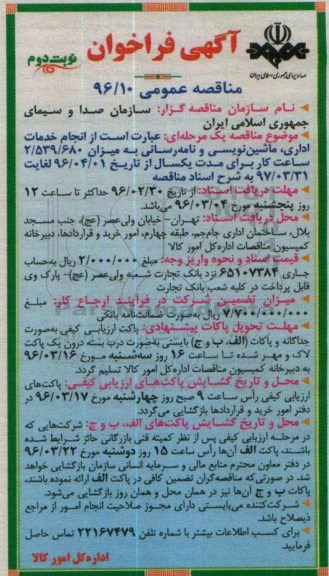 آگهی فراخوان
نوبت دوم
صداوسیمای جمهوری اسلامی ایران
مناقصه عمومی ۹۶/۱۰
نـام سازمان مناقصه گـزار: سازمان صدا و سیمای
جمهوری اسلامی ایران
موضوع مناقصه یک مرحله‌ای: عبارت است از انجام خدمات
اداری، ماشین‌نویسـی و نامه‌رسانی به میـزان ۲/۵۳۹/۶۸۰
ساعت کار بـرای مـدت یکسـال از تاریـخ ۹۶/۰۴/۰۱ لغایت
۹۷/۰۳/۳۱ به شرح اسناد مناقصه
مهلت دریافت اسـناد: از تاریخ ۹۶/۰۲/۳۰ حداکثر تا ساعت ۱۲
روز پنجشنبه مورخ ۹۶/۰۳/۰۴ می‌باشد.
محل دریافت اسـناد: تهـران- خیابان ولی‌عصر (عج)، جنب مسجد
بلال، ساختمان اداری جام‌جم، طبقه چهارم، امور خرید و قراردادها، دبیرخانه
کمیسیون مناقصات اداره‌کل امور کالا
قیمت اسناد و نحوه واریز وجه: مبلغ ۲/۰۰۰/۰۰۰ ریال به‌حساب
جاری ۶۵۱۰۷۳۸۴ نزد بانک تجارت شـعبه ولی‌عصر (عج)- پارک وی
قابل پرداخت در کلیه شعب بانک تجارت
میـزان تضمین شـرکت در فرآیند ارجـاع کار: مبلـغ
۷/۷۰۰/۰۰۰/۰۰۰ ریال به‌صورت ضمانت‌نامه بانکی
مهلـت تحویل پاکات پیشـنهادی: پاکت ارزیابـی کیفی به‌صورت
جداگانه و پاکات (الف، ب و ج) بایستی به‌صورت درب بسته درون یک پاکت
لاک و مهر شده تا ساعت ۱۶ روز سه‌شنبه مورخ ۹۶/۰۳/۱۶
به دبیرخانه کمیسیون مناقصات اداره‌کل امور کالا تسلیم گردد.
محل و تاریخ گشایش پاکت‌های ارزیابی کیفی: پاکت‌های
ارزیابی کیفی رأس ساعت ۹ صبح روز چهارشنبه مورخ ۹۶/۰۳/۱۷ در
دفتر امور خرید و قراردادها بازگشایی می‌گردد.
محل و تاریخ گشایش پاکت‌های الف، ب و ج: شرکت‌هایی که
در مرحلـه ارزیابی کیفی پس از نظر کمیته فنی بازرگانی حائز شرایط شده
باشند، پاکت الف آن‌ها رأس ساعت ۱۵ روز دوشنبه مورخ ۹۶/۰۳/۲۲
در دفتر معاون محترم منابع مالی و سرمایه انسانی سازمان بازگشایی خواهد
شد. در صورتی‌که مناقصه‌گران تضمین کافی در پاکت الف ارائه نموده باشند،
پاکات ب و ج آن‌ها نیز در همان محل و همان روز بازگشایی می‌شود.
شرکت‌کننده می‌بایستی دارای مجوز صلاحیت انجام امور از مراجع
ذیصلاح باشد.
برای کسب اطلاعات بیشتر با شماره تلفن ۲۲۱۶۷۴۷۹ تماس حاصل
فرمایید.
اداره‌کل امور کالا